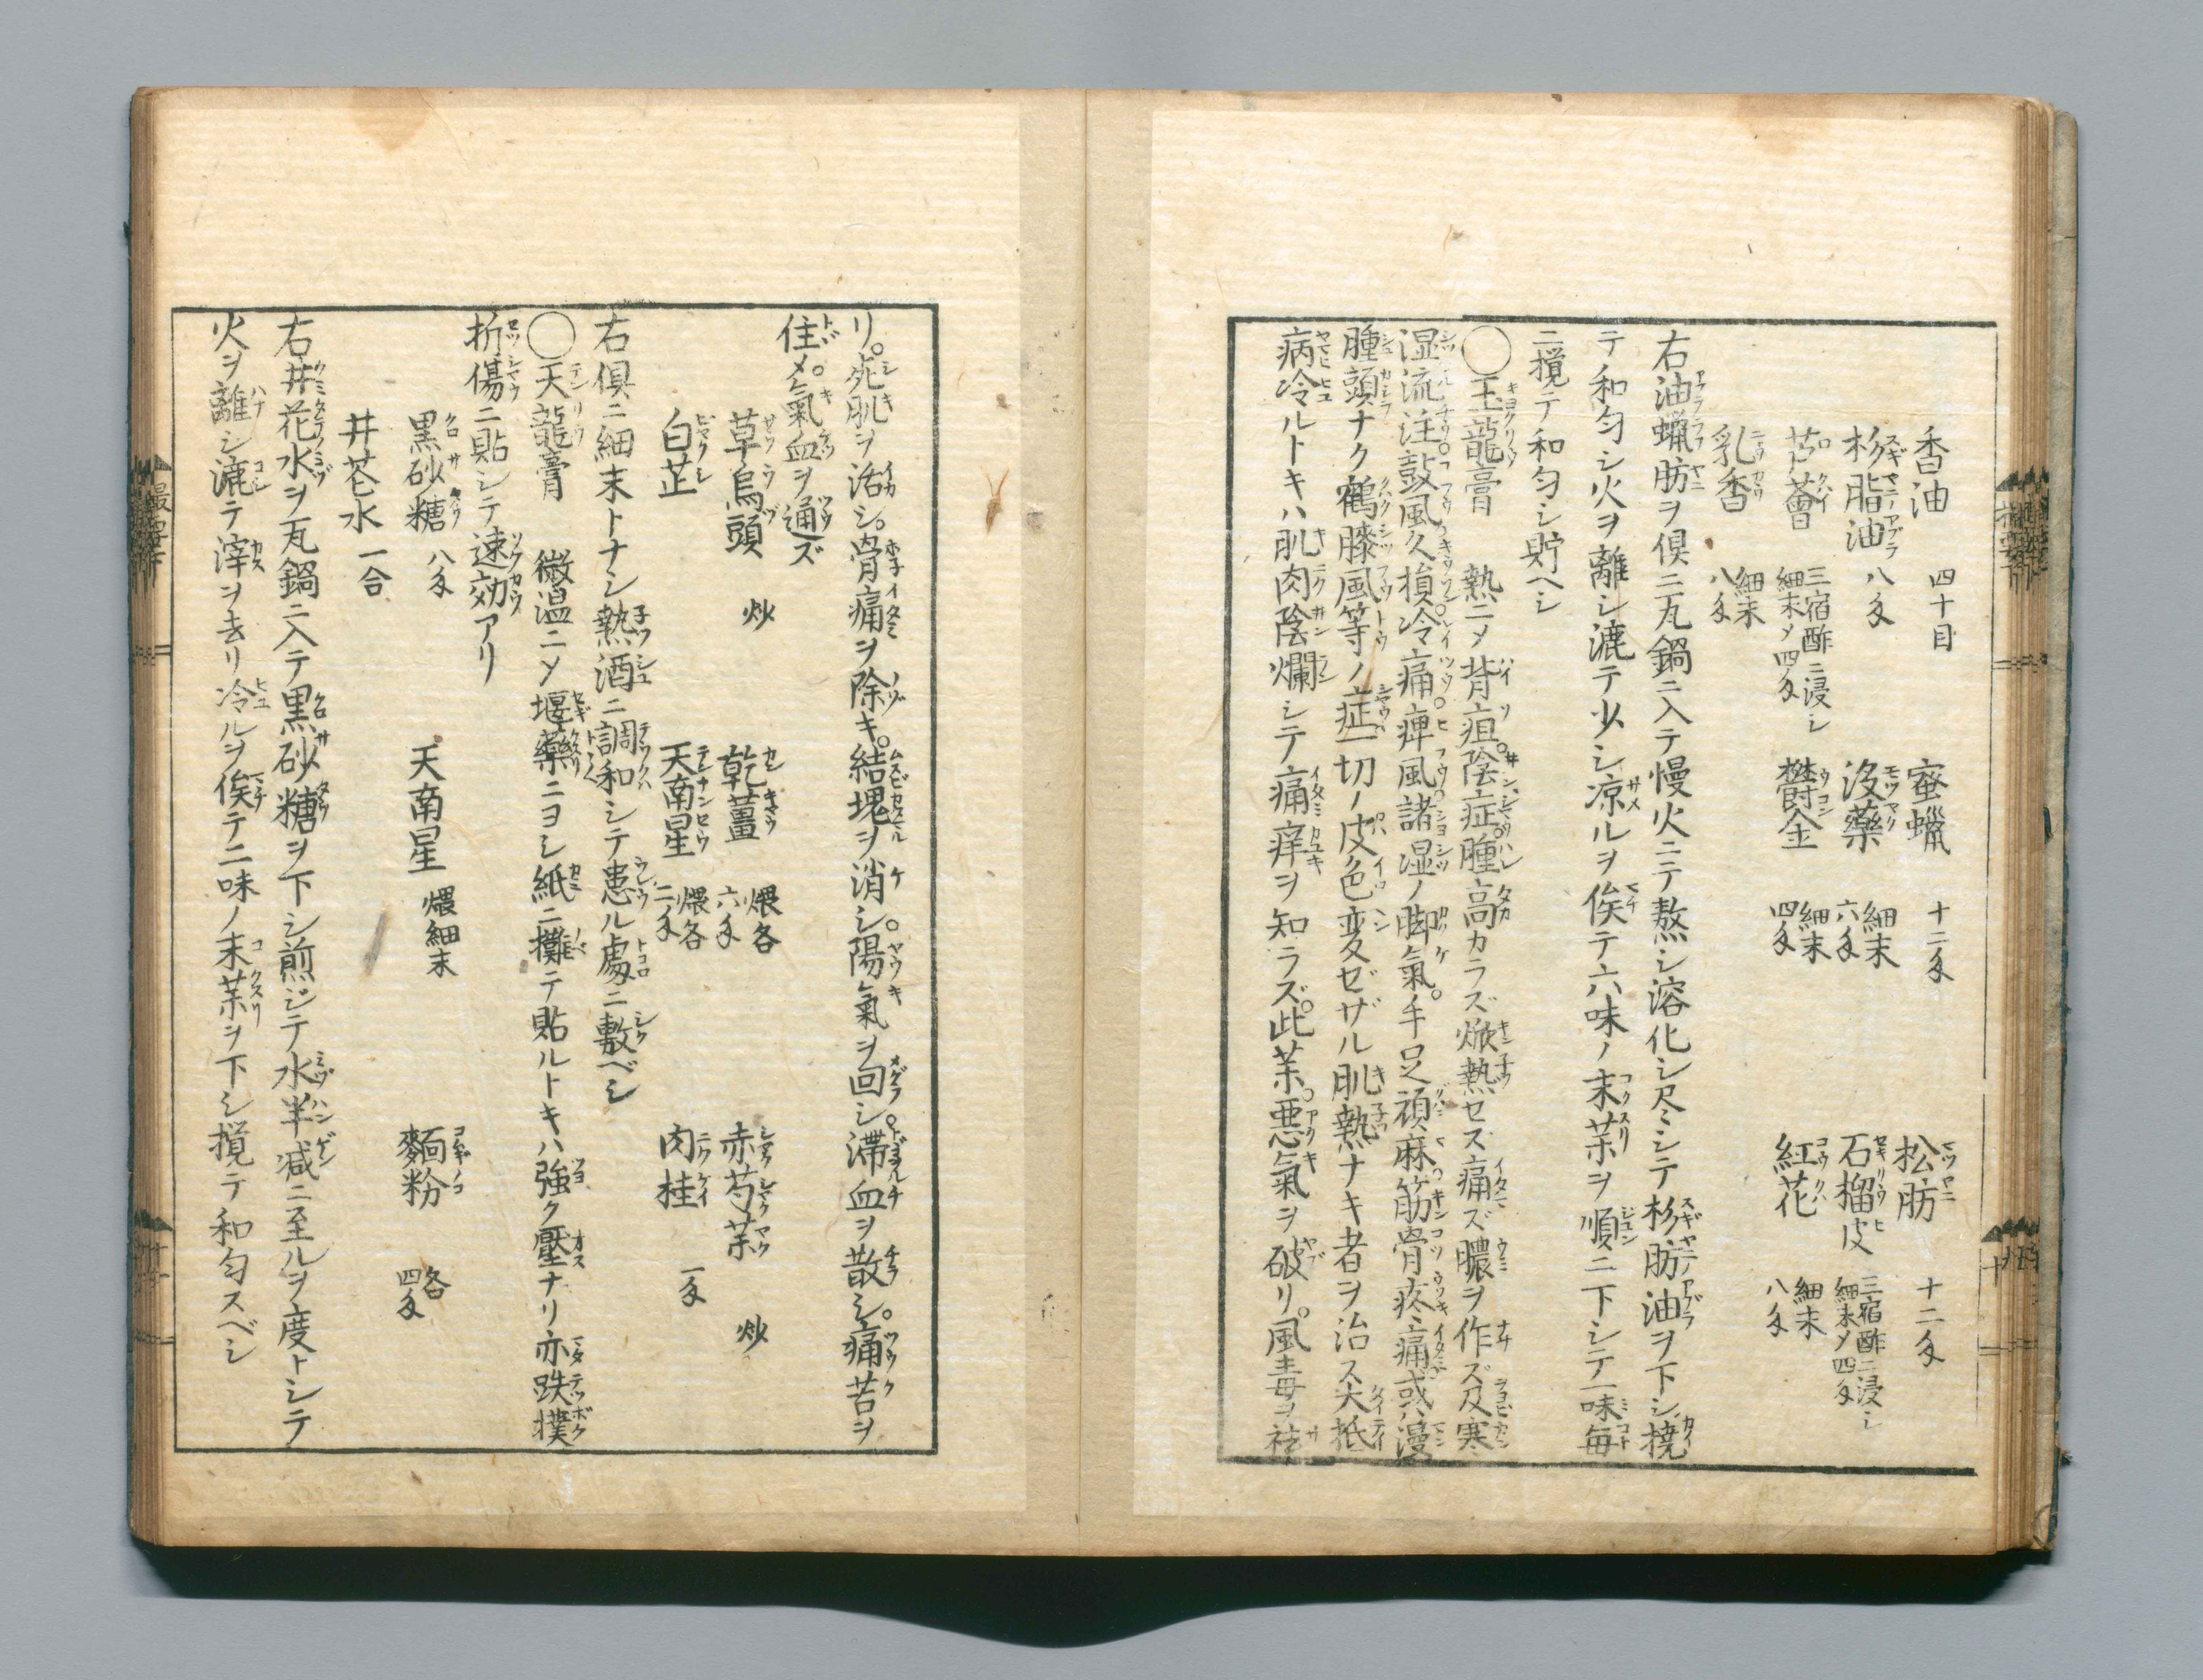 香油 四十目 蜜蠟 十二匁 松肪 十二匁
杉脂油 八匁 没藥 細末六匁 石榴皮 三宿酢ニ浸シ細末〆四匁
芦薈 三宿酢ニ浸シ細末〆四匁 欝金 細末四匁 紅花 細末八匁
乳香 細末八匁
右油蠟肪ヲ倶ニ瓦鍋ニ入テ慢火ニテ熬シ溶化シ尽シテ杉肪油ヲ下シ撓
テ和匀シ火ヲ離シ漉テ少シ凉ルヲ俟テ六味ノ末茱ヲ順ニ下シテ一味毎
ニ撹テ和匀シ貯ヘシ
○玉龍膏 熱ニ〆背疽。陰症。腫高カラズ焮熱セス痛ズ膿ヲ作ズ及寒
湿流注。鼓風久損。冷痛。痺風。諸湿ノ脚氣。手足頑麻。筋骨疼痛或ハ漫
腫頭ナク鶴膝風等ノ症一切ノ皮色変ゼザル肌熱ナキ者ヲ治ス大抵
病冷ルトキハ肌肉陰爛シテ痛痒ヲ知ラズ。此茱。悪氣ヲ破リ。風毒ヲ祛
リ。死肌ヲ活シ。骨痛ヲ除キ。結塊ヲ消シ。陽氣ヲ回シ。滞血ヲ散シ。痛苦ヲ
住メ。氣血ヲ通ズ
草烏頭 炒 乾薑 煨各六匁 赤芍茱 炒
白芷 天南星 煨各二匁 肉桂 一匁
右倶ニ細末トナシ熱酒ニ調和シテ患ル處ニ敷ベシ
○天龍膏 微温ニ〆堰藥ニヨシ紙ニ攤テ貼ルトキハ強ク壓ナリ亦跌撲
折傷ニ貼シテ速効アリ
黒砂糖 八匁 天南星 煨細末 麵粉 各四匁
井芲水 一合
右井花水ヲ瓦鍋ニ入テ黒砂糖ヲ下シ煎ジテ水半減ニ至ルヲ度トシテ
火ヲ離シ漉テ滓ヲ去リ冷ルヲ俟テ二味ノ末茱ヲ下シ撹テ和匀スベシ